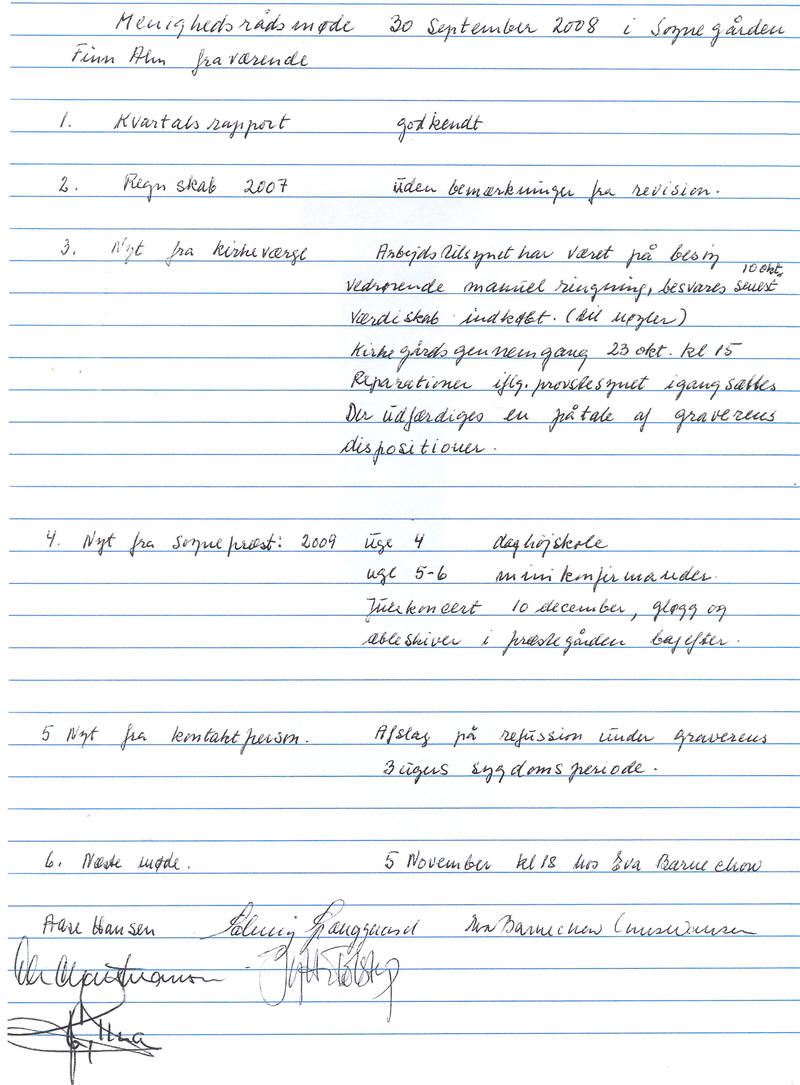 Menighedsrådsmøde 30 September 2008 i Sognegården
Finn Alm fraværende
1. Kvartalsrapport godkendt
2. Regnskab 2007 uden bemærkninger fra revision.
3. Nyt fra kirkeværge Arbejdstilsynet har været på besig
10 okt.
vedrørende manuel ringning, besvares senest
Værdiskab indkøbt. (til nøgler)
Kirkegårdsgennemgang 23 okt. kl 15
Reparationer iflg. provstesynet igangsættes
Der udfærdiges en påtale af graverens
dispositioner.
4. Nyt fra Sognepræst: 2009 uge 4 daghøjskole
uge 5-6 minikonfirmander.
Julekoncert 10 december, gløgg og
æbleskiver i præstegården bagefter.
5 Nyt fra kontaktperson. Afslag på refussion under graverens
3 ugers sygdomsperiode.
6. Næste møde. 5 November kl 18 hos Eva Barnechow
Aase Hansen Solveig Spanggaard Eva Barnechow